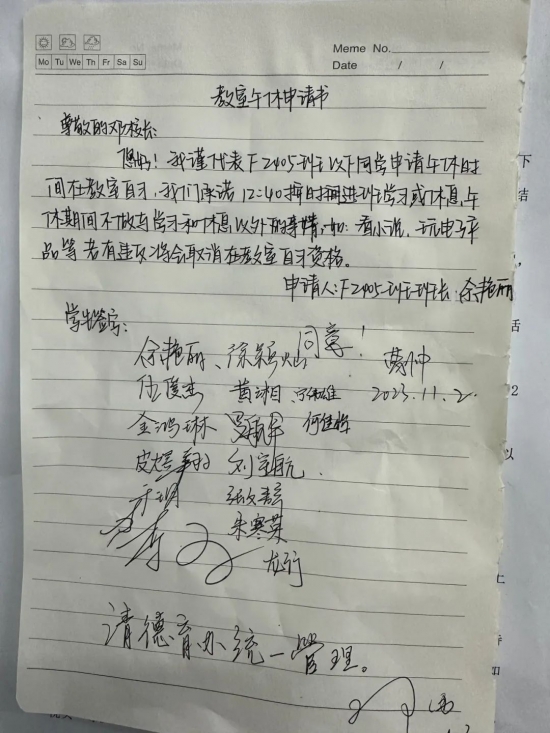 Meme No.
Mo Tu We Th Fr Sa Su
Date / /
教室午休申请书
尊敬的邓校长:
您好!我谨代表F2405班以下同学申请午休时
间在教室自习,我们承诺12:40按时进班学习或休息,午
休期间不做与学习和休息以外的事情,如:看小说、玩电子产
品等 若有违反将会取消在教室自习资格。
申请人:F2405班班长 余艳丽
学生签字:
同意!
余艳丽、
伍俊杰 黄湘 2023.11.2
金鸿琳 何佳
皮 刘宇航
朱寒英
龙行
请德育办统一管理。
下
结
活
2
以
上
如